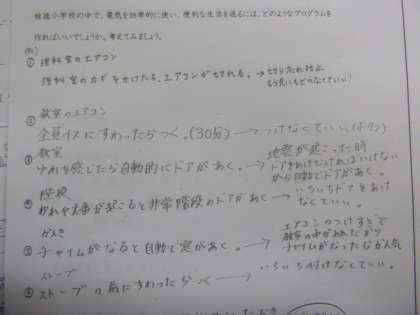 修徳小学校の中で、電気を効率的に使い、便利な生活を送るには、どのようなプログラムを
作ればいいでしょうか。考えてみましょう。
(例)
① 理科室のエアコン
理科室のカギをかけたら、エアコンが切れる。→切り忘れ防止
もう見にもどらなくていい!
② 教室のエアコン
全員イスにすわったらつく。(30分)→つけなくていい(ボタン)
③ 教室
ゆれを感じたら自動的にドアがあく。→
地震が起こった時
ドアをあけなければいけない
から自動でドアがあく。
④ 階段
ゆれや火事が起こると非常階段のドアがあく→いちいちドアをあけ
なくていい。
⑤
チャイムがなると自動で窓があく。→
エアコンのつけすぎで
チャイムがなったらかん気
ストーブ
ストーブの前にすわったらつく→いちいち付けなくていい。